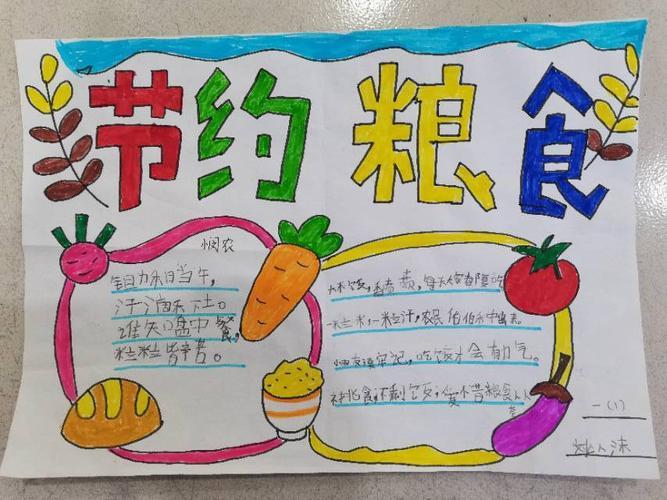 节约粮食
悯农
锄禾日当午，
汗滴禾下土。
谁知盘中餐，
粒粒皆辛苦。
米饭，香喷喷，每天大家都要吃
一粒米，一粒汗，农民伯伯
小朋友请牢记，吃饭才会有力气。
不挑食，不剩饭，爱惜粮食人人
一(1)